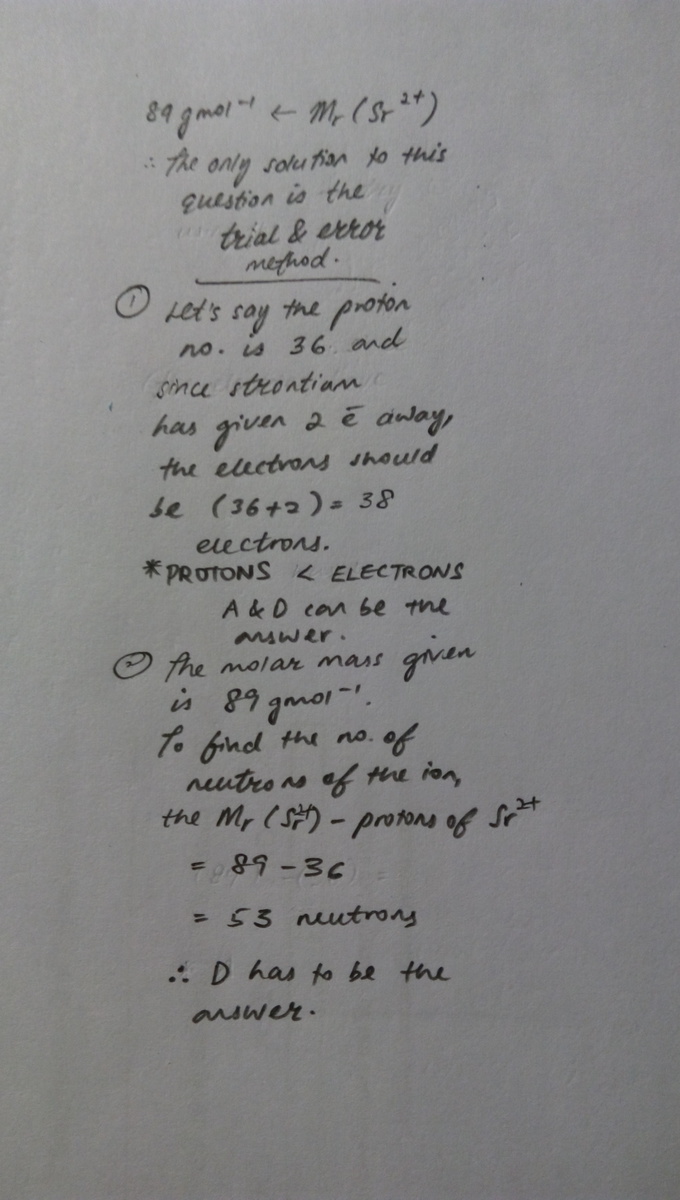 89 gmol⁻¹ ← Mr (Sr²⁺)
∴ The only solution to this
question is the
trial & error
method.
① Let's say the proton
no. is 36 and
since strontium
has given 2 ē away,
the electrons should
be (36+2) = 38
electrons.
*PROTONS < ELECTRONS
A & D can be the
answer.
② The molar mass given
is 89 gmol⁻¹.
To find the no. of
neutrons of the ion,
the Mr (Sr²⁺) - protons of Sr²⁺
= 89 - 36
= 53 neutrons
∴ D has to be the
answer.